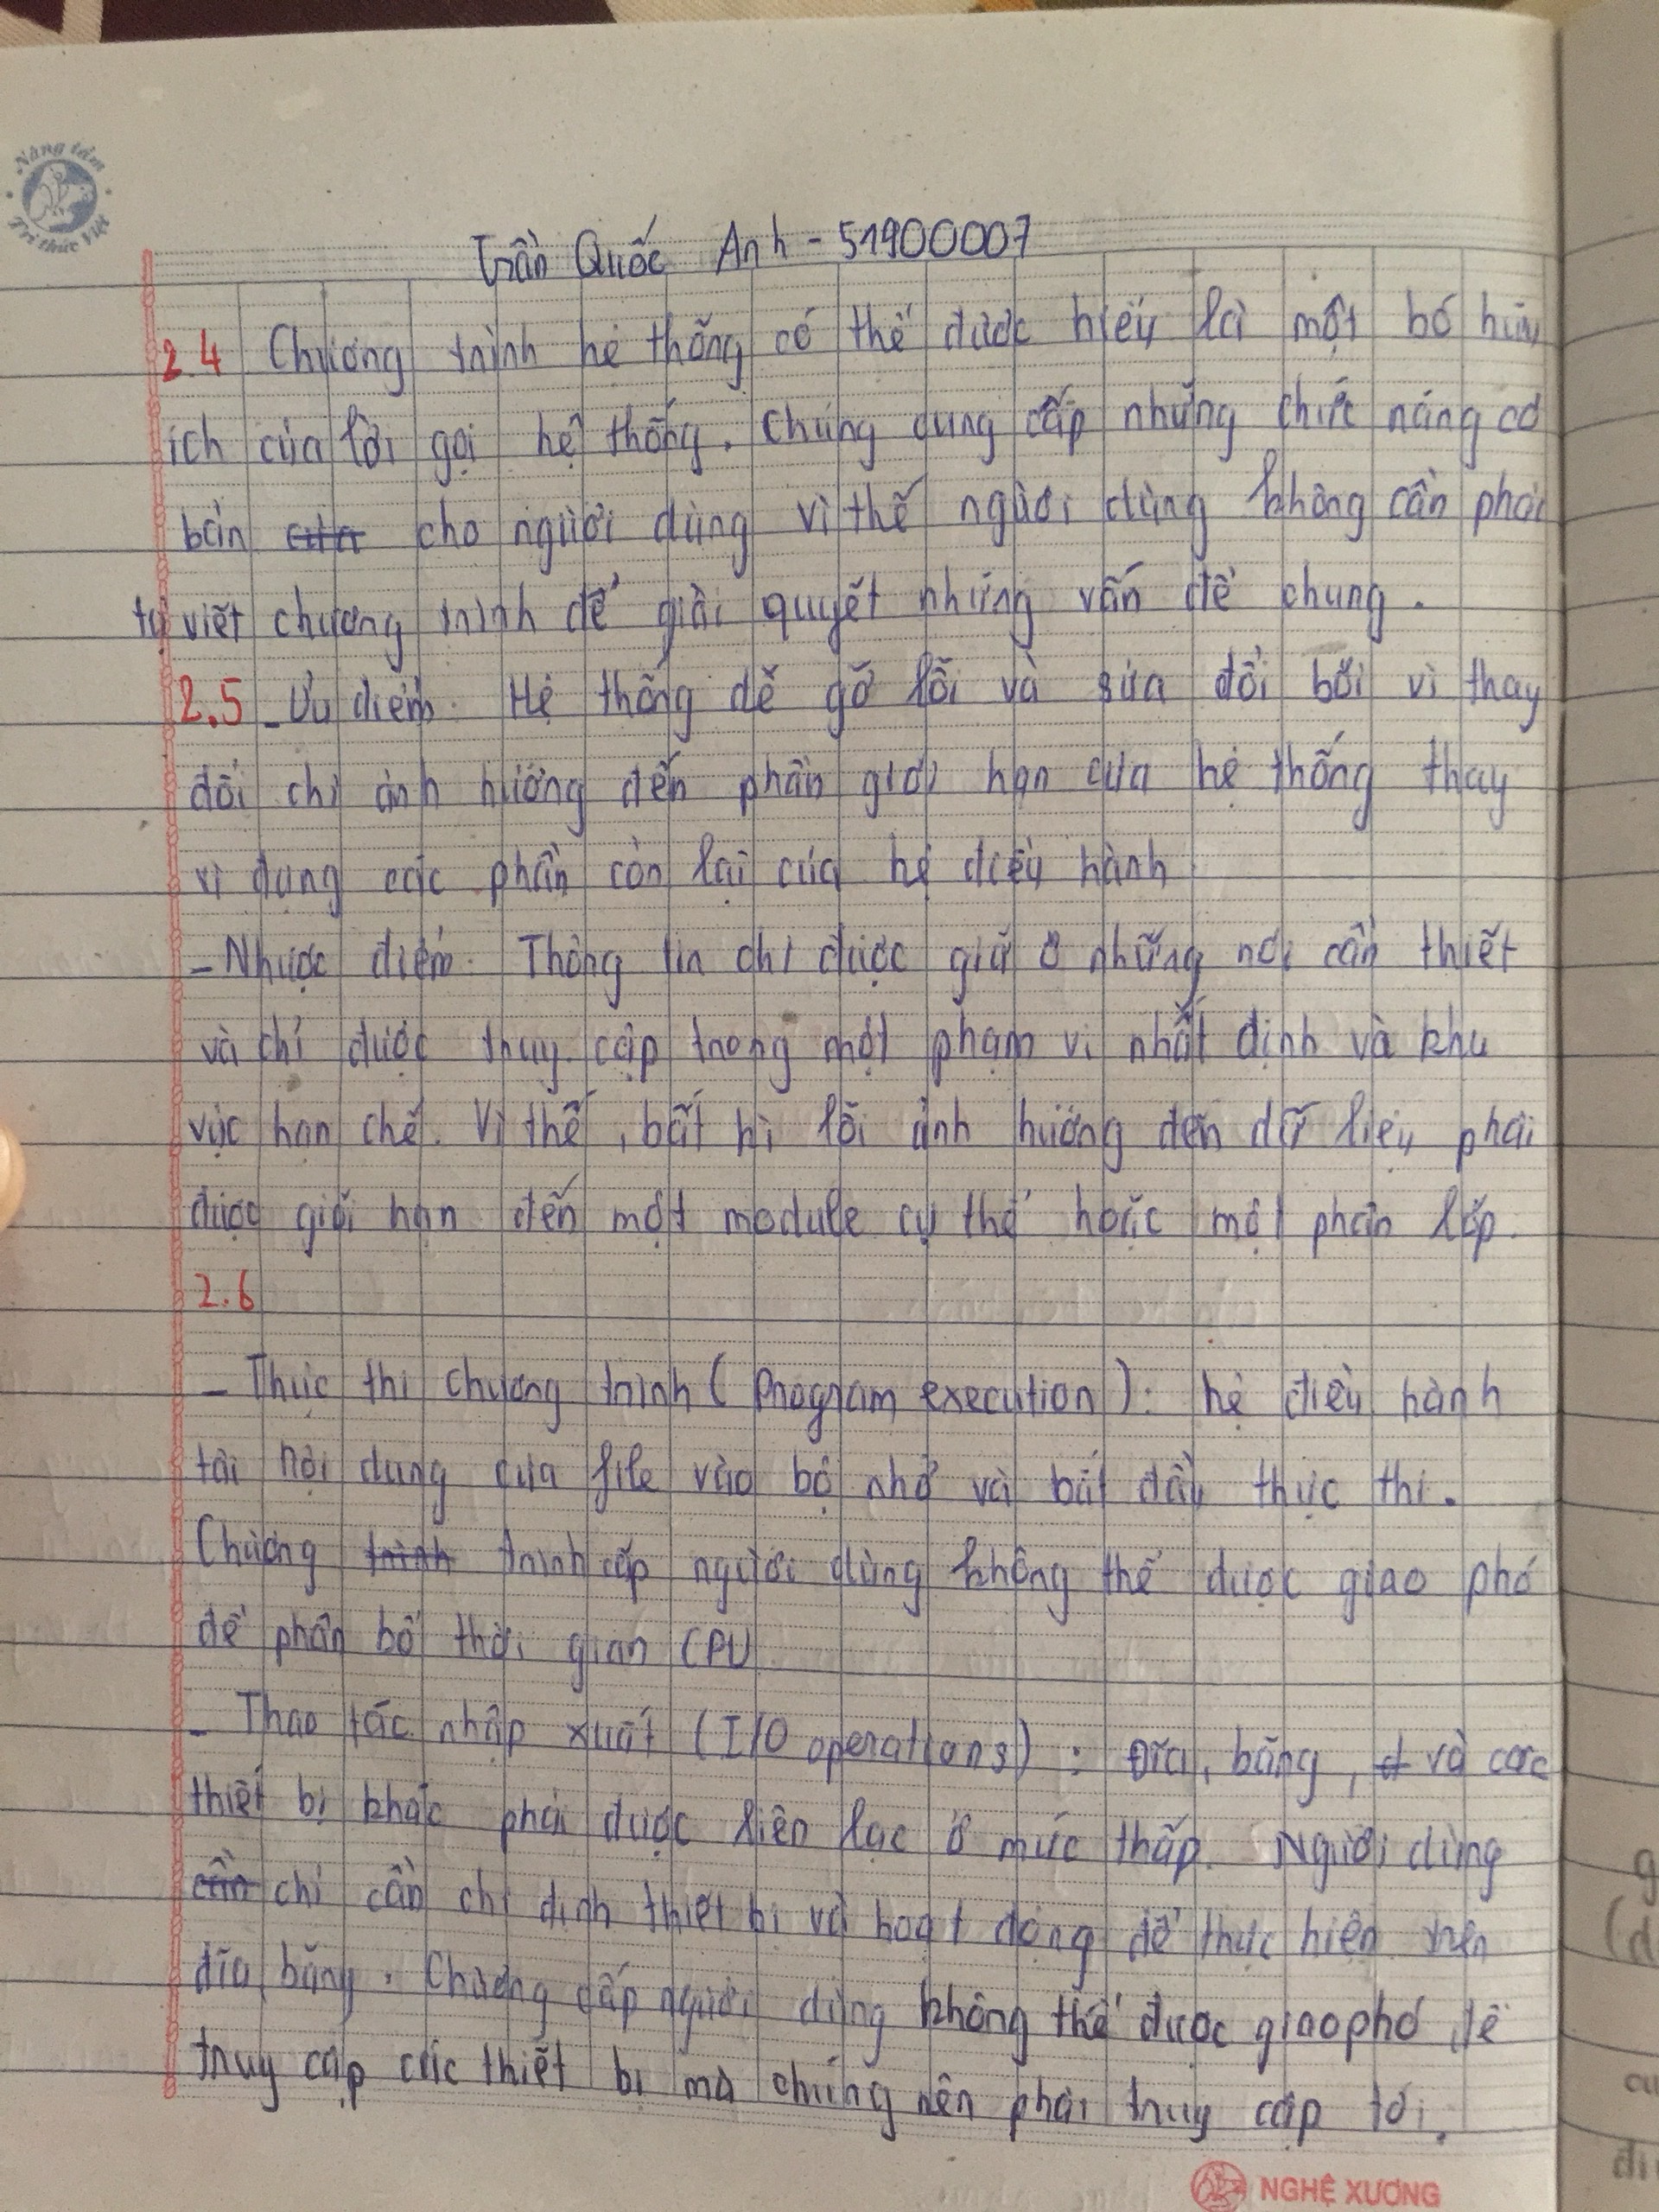 Nâng tầm
Tri thức Việt
Trần Quốc Anh - 51900007
2.4 Chương trình hệ thống có thể được hiểu là một bó hữu
ích của lời gọi hệ thống. Chúng cung cấp những chức năng cơ
bản cho người dùng vì thế người dùng không cần phải
tự viết chương trình để giải quyết những vấn đề chung.
2.5 - Ưu điểm: Hệ thống dễ gỡ lỗi và sửa đổi bởi vì thay
đổi chỉ ảnh hưởng đến phần giới hạn của hệ thống thay
vì đụng các phần còn lại của hệ điều hành
- Nhược điểm: Thông tin chỉ được giữ ở những nơi cần thiết
và chỉ được thuy cập trong một phạm vi nhất định và khu
vực hạn chế. Vì thế, bất kì lỗi ảnh hưởng đến dữ liệu phải
được giới hạn đến một module cụ thể hoặc một phân lớp.
2.6
- Thực thi chương trình (Program execution): hệ điều hành
tải nội dung của file vào bộ nhớ và bắt đầu thực thi.
Chương trình trình cấp người dùng không thể được giao phó
để phân bổ thời gian CPU
- Thao tác nhập xuất (I/O operations): Đĩa, băng, và các
thiết bị khác phải được liên lạc ở mức thấp. Người dùng
cần chỉ cần chỉ định thiết bị và hoạt động để thực hiện trên
đĩa, băng. Chương cấp người dùng không thể được giao phó để
truy cập các thiết bị mà chúng nên phải truy cập tới.
NGHỆ XƯƠNG